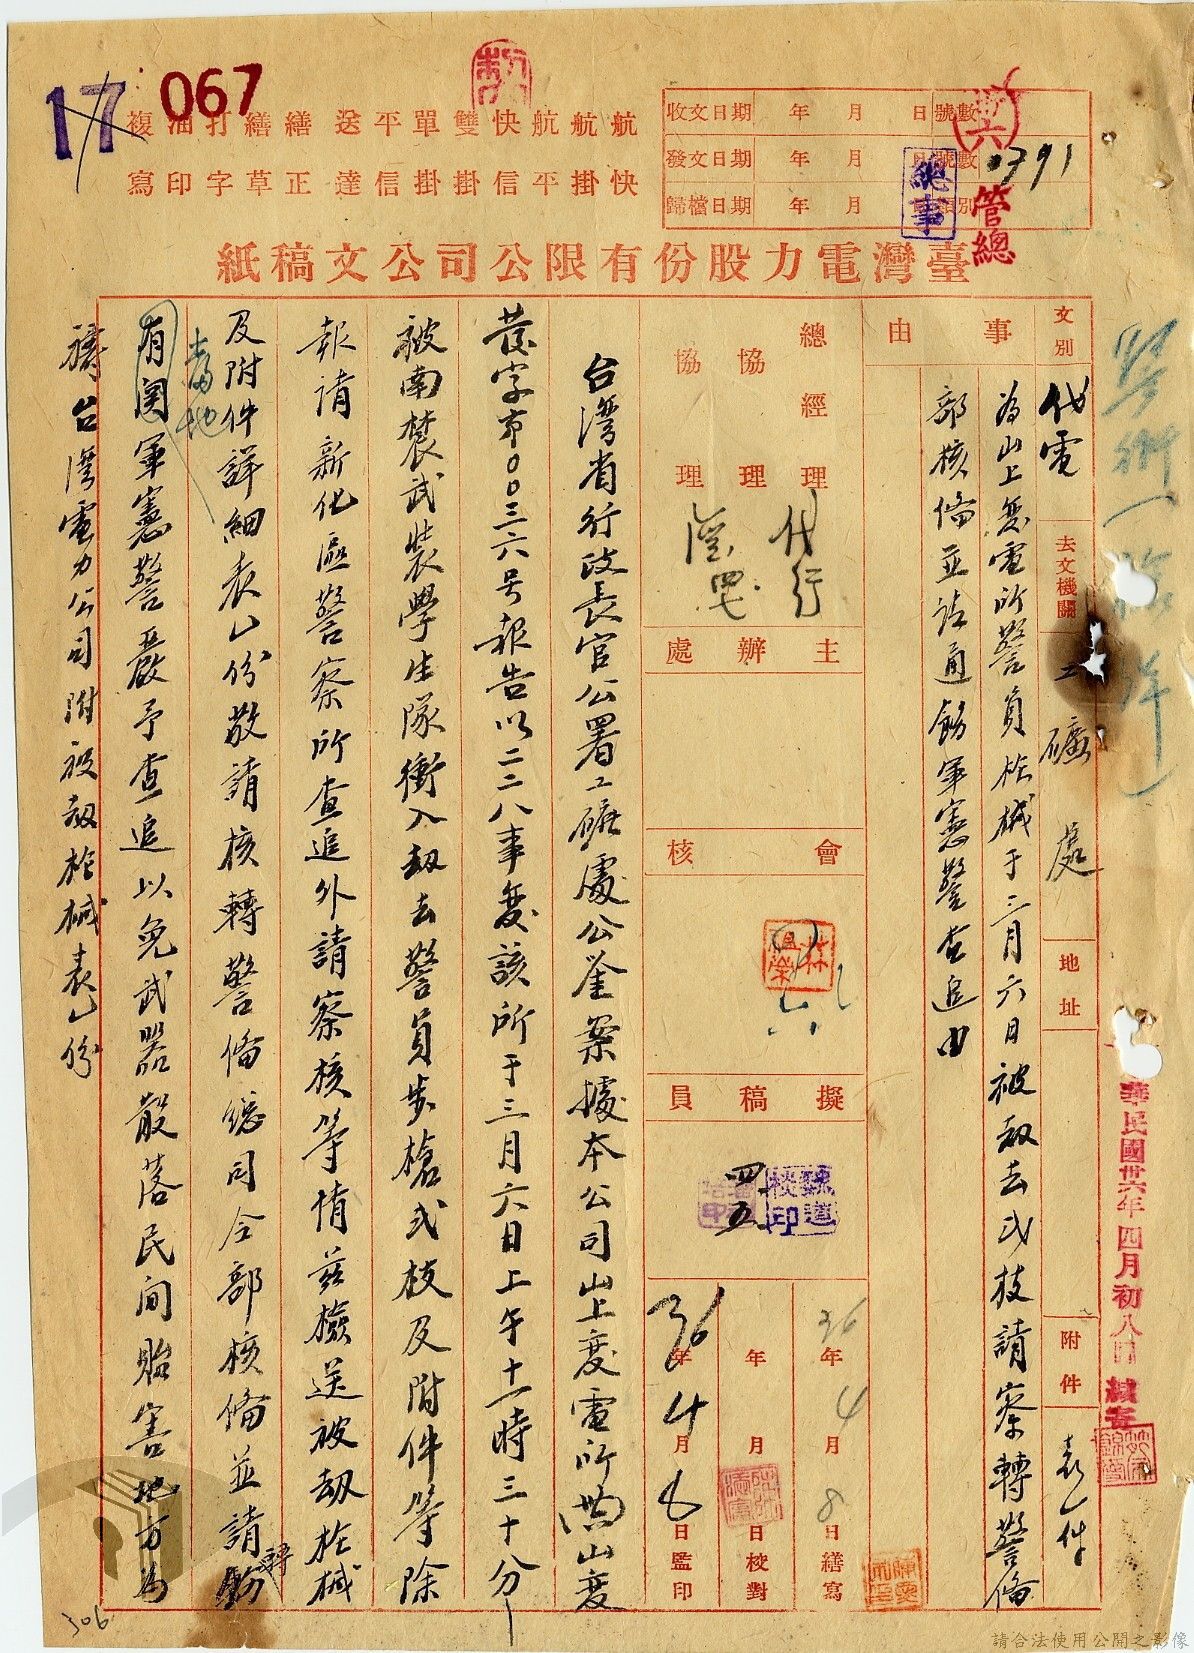 17
067
航 航 航 快 雙 單 平 送 繕 繕 打 油 複
快 掛 平 信 掛 掛 信 達 正 草 字 印 寫
收文日期 年 月 日 號數
發文日期 年 月 日 號數
歸檔日期 年 月 別
0791
總事
管總
臺灣電力股份有限公司公文稿紙
文別 代電
去文機關 工礦處
地址
附件 表一件
事由
為山上变電所警員槍械于三月六日被刼去弍枝請察轉警備
部核備並請通飭軍憲警查追由
總經理
協理
協理
代行
主辦處
會核
擬稿員
魏道
印
四五
36年4月8日繕寫
年 月 日校對
36年4月8日監印
台灣省行政長官公署工礦處公鉴案據本公司山上变電所山变
發字第00三六号報告以二二八事変該所于三月六日上午十一時三十分
被南農武裝學生隊衝入刼去警員步槍弍枝及附件等除
報請新化區警察所查追外請察核等情茲檢送被刼槍械
及附件詳細表一份敬請核轉警備總司令部核備並請轉飭
有関軍憲警嚴予查追以免武器散落民间貽害地方為
禱台灣電力公司附被刼槍械表一份
華民國卅六年四月初八日
306
請合法使用公開之影像